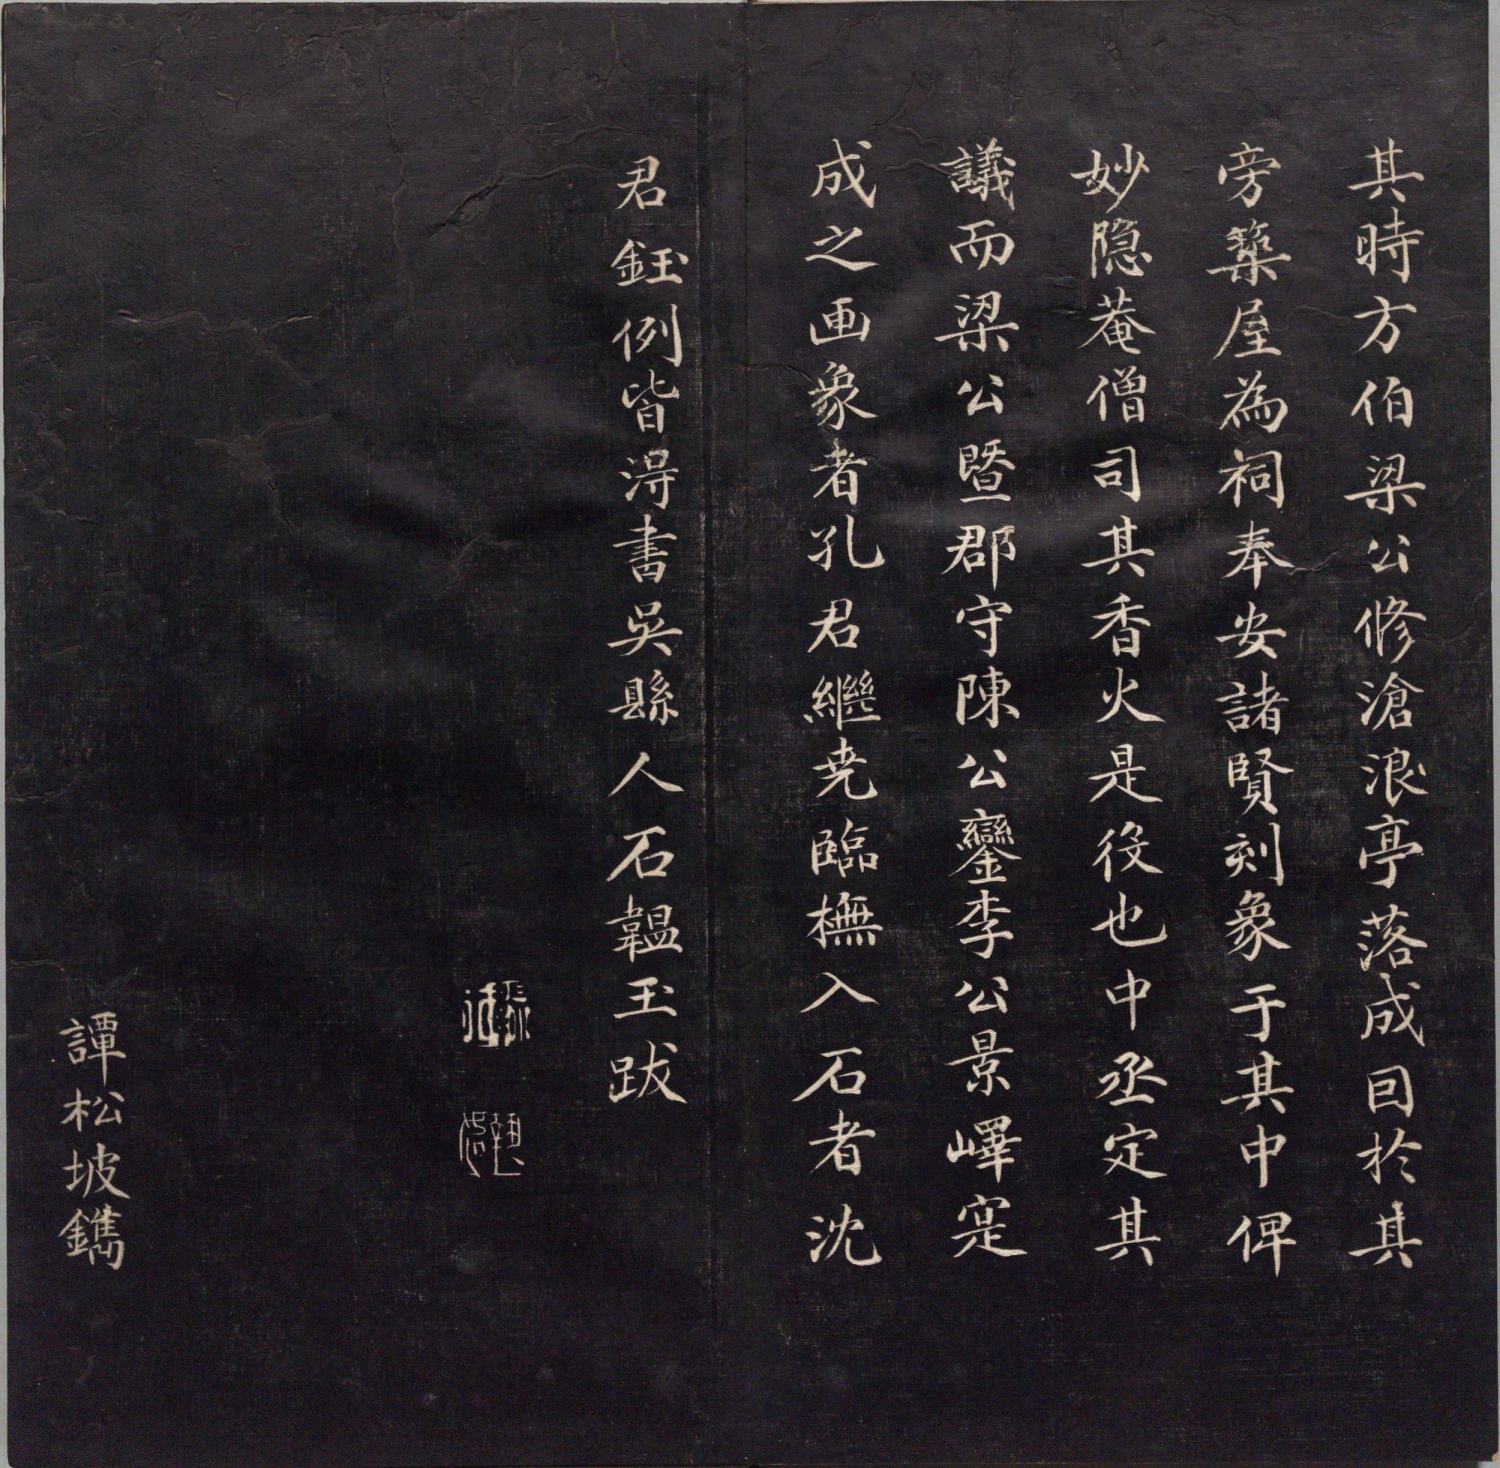 其時方伯梁公修滄浪亭落成回於其
旁築屋為祠奉安諸賢刻象于其中俾
妙隐菴僧司其香火是役也中丞定其
議而梁公暨郡守陳公鑾李公景嶧寔
成之画象者孔君繼尭臨橅入石者沈
君鈺例皆淂書吳縣人石韞玉跋
譚松坡鐫